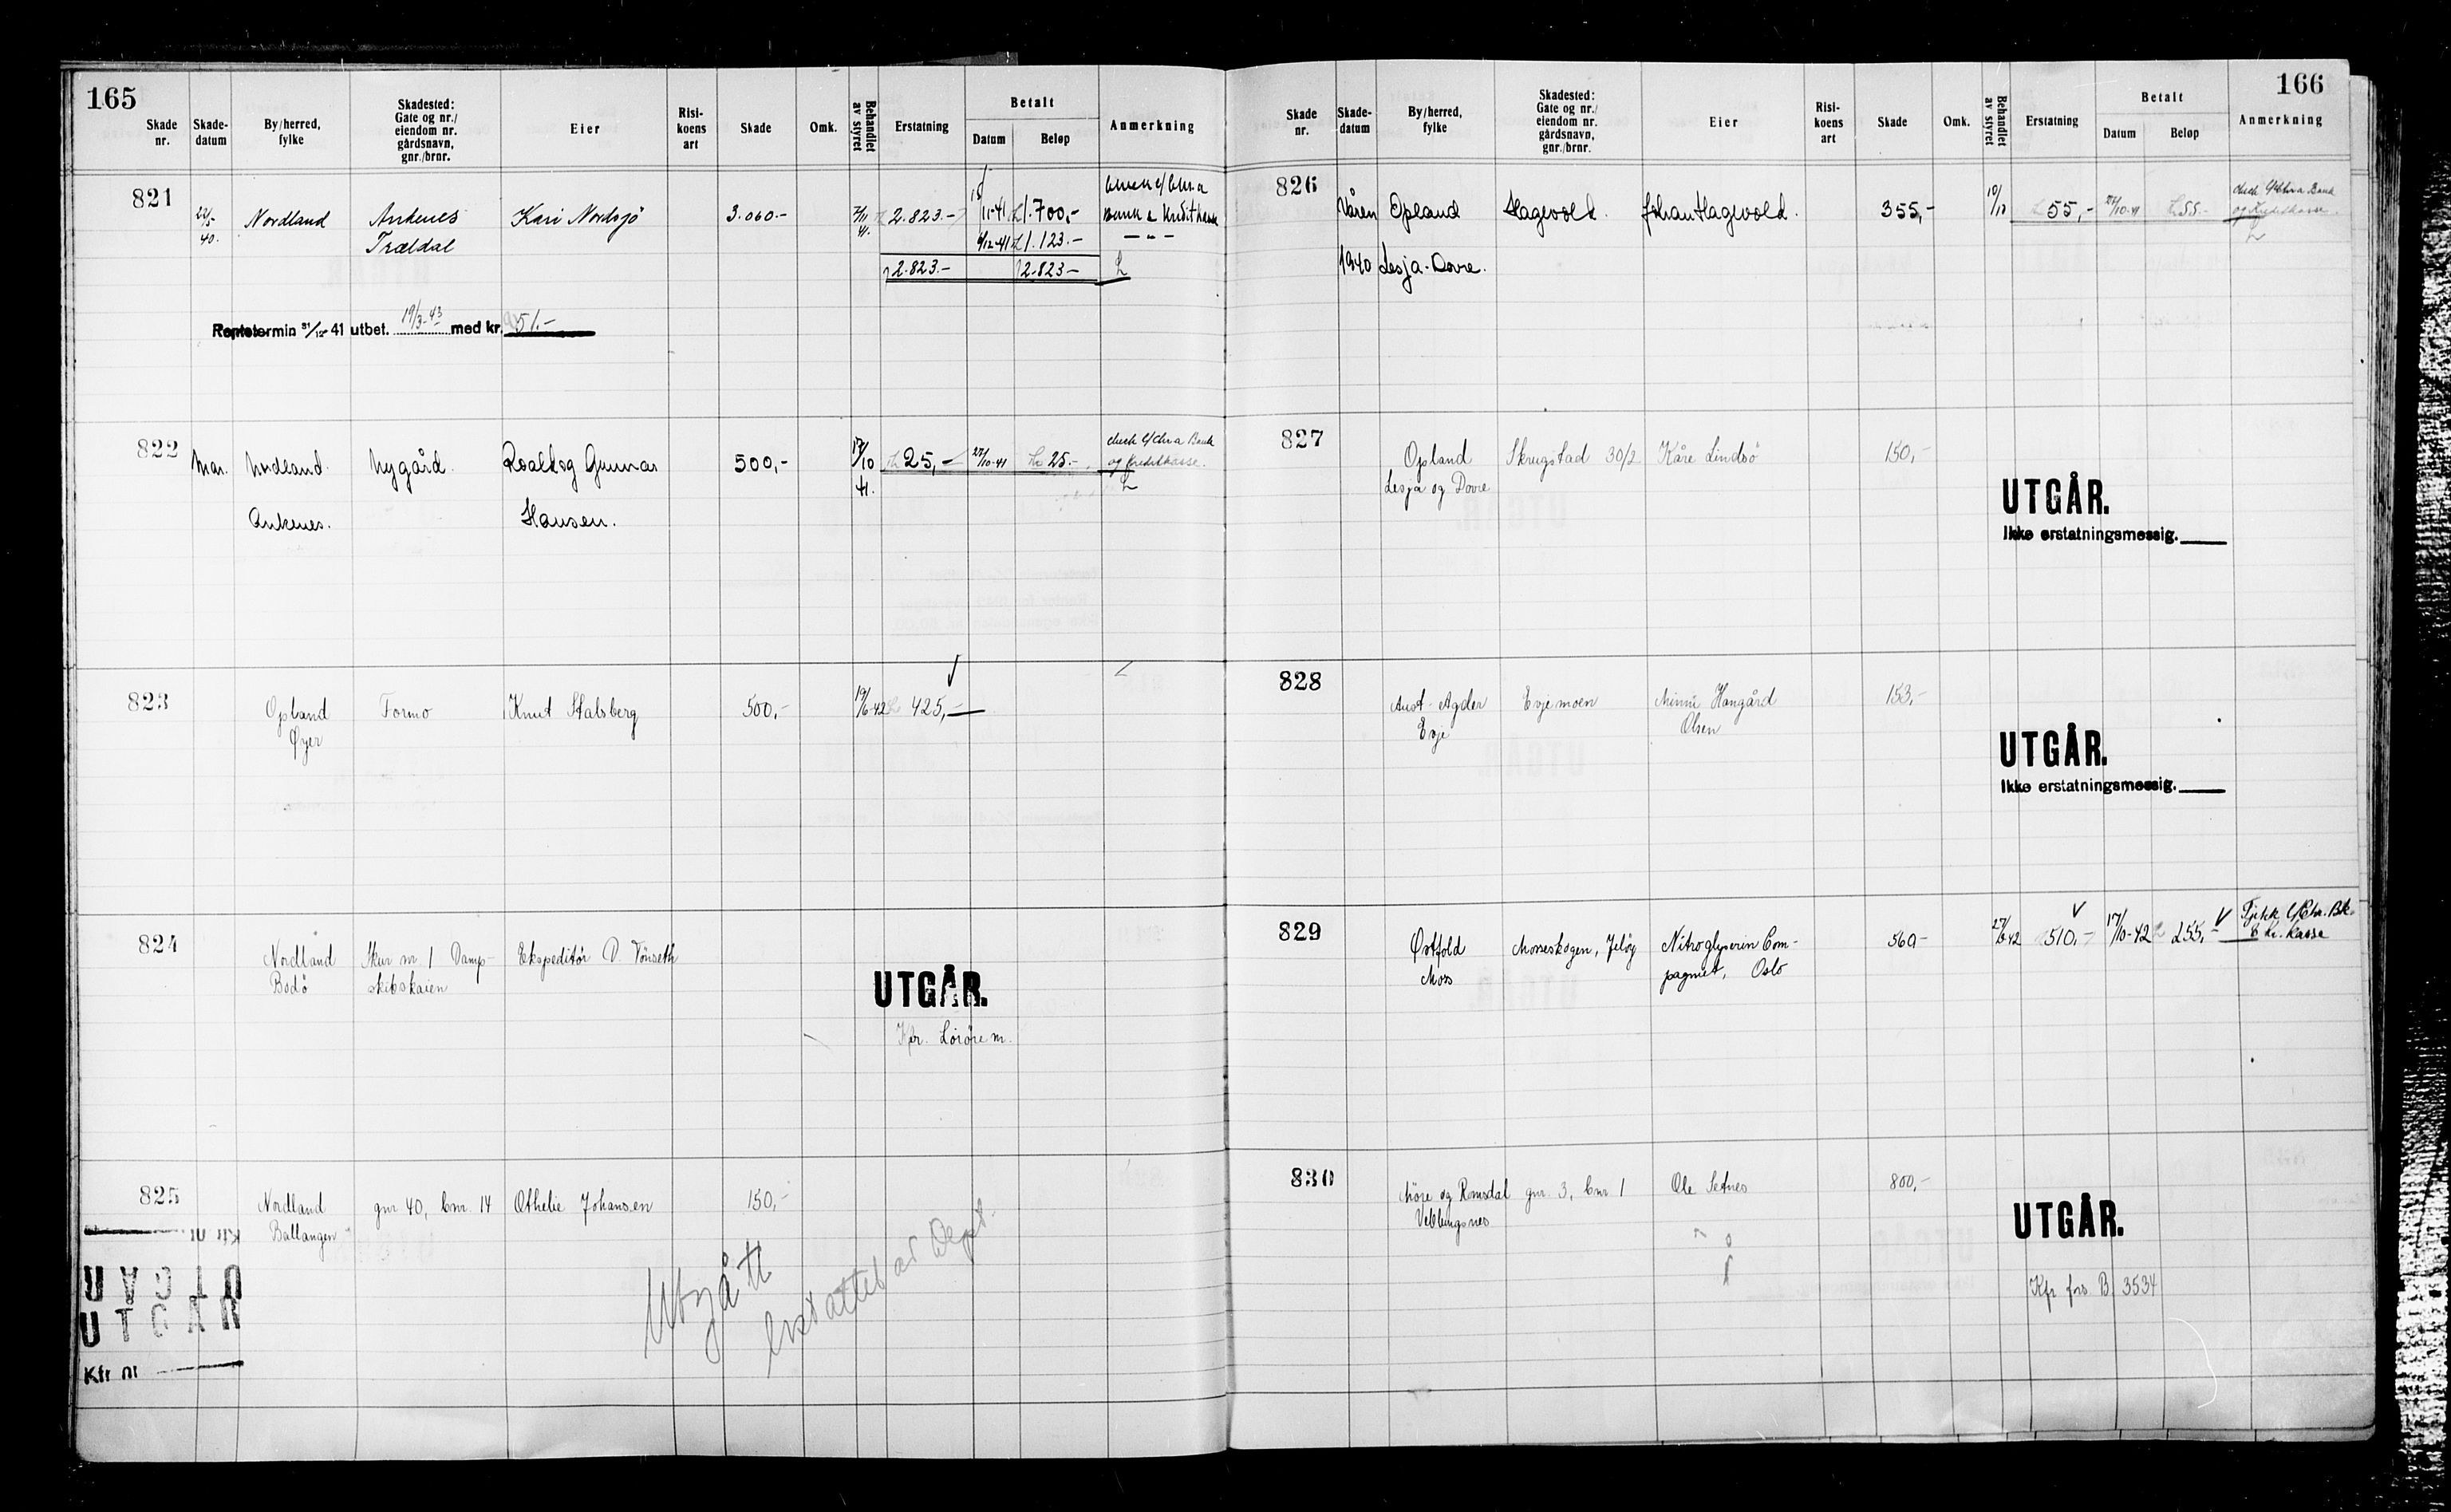 165
Skade nr.
Skade-datum
By/herred, fylke
Skadested: Gate og nr./ eiendom nr. gårdsnavn, gnr./brnr.
Eier
Risi-koens art
Skade
Omk.
Behandlet av styret
Erstatning
Betalt
Datum
Beløp
Anmerkning
821
22/5 40.
Nordland
Ankenes
Kari Nordsjö
3.060.-
7/11 41.
2.823.-
11-41
1.700,-
Bank & Kreditkasse
Trældal
9/12-41
1.123.-
- " -
2.823.-
2.823-
Rentetermin 31/12 41 utbet. 19/3-43 med kr. 51.-
822
Mar.
Nordland.
Nygård.
Roald og Gunnar
500,-
17/10 41.
25,-
27/10-41
25.-
og Kreditkasse.
Ankenes.
Hansen.
823
Opland
Formo
Knut Stalsberg
500,-
19/6-42
425,-
Øyer
824
Nordland
Skur nr 1 Damp-
Ekspeditör D. Tönseth
Bodö
skibskaien
UTGÅR.
Kfr. Lösöre nr.
825
Nordland
gnr 40, bnr. 14
Othelie Johansen
150,-
Ballangen
Kfr nr
UTGÅR
UTGÅR
Kfr nr
Utgått
Erstattet av Dept.
166
Skade nr.
Skade-datum
By/herred, fylke
Skadested: Gate og nr./ eiendom nr. gårdsnavn, gnr./brnr.
Eier
Risi-koens art
Skade
Omk.
Behandlet av styret
Erstatning
Betalt
Datum
Beløp
Anmerkning
826
Våren
Opland
Hagevold.
Johan Hagevold.
355,-
10/10
55,-
27/10-41
55.-
og Kreditkasse.
1940
Lesja-Dovre.
827
Opland
Skrugstad 30/2
Kåre Lindsö
150,-
Lesja og Dovre
UTGÅR.
Ikke erstatningsmessig.
828
Aust-Agder
Evjemoen
Minni Haugård
153,-
Evje
Olsen
UTGÅR.
Ikke erstatningsmessig.
829
Østfold
Mosseskogen, Jelöy
Nitroglyserin Com-
560-
27/6-42
510.-
17/10-42
255,-
Moss
pagniet, Oslo
Kr. kasse
830
Möre og Romsdal
gnr. 3, bnr 1
Ole Setnes
800,-
Veblungsnes
UTGÅR.
Kfr fors B 3534